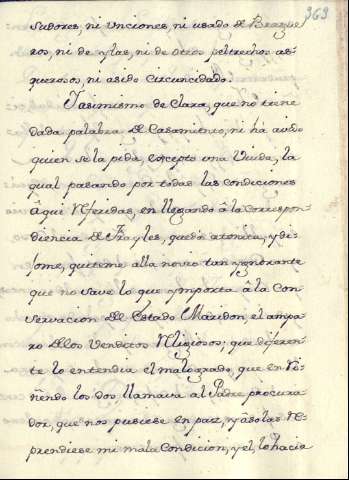 363
Sudores, ni Unciones, ni usado de Brague
ros, ni de ni de otros peltrechos as-
querosos, ni asido circuncidado.
Y asimismo declara, que no tiene
dada palabra de Casamiento, ni há avido
quien se la pida, excepto una Viuda, la
qual pasando por todas las condiciones
âqui Referidas, en llegando â la correspon
diencia de Frayles, quedó atonita, y di-
jome, quiteme alla novio tan ygnorante
que no save lo que ymporta â la Con
servacion del Estado Maridon, el ampa
ro de los Venditos Religiosos; que diferen
te lo entendia el malogrado, que en Ri-
ñendo los dos llamava al Padre procura
dor, que nos pusiese en paz, y âsolas Re
prendiese mi mala Condicion, y el, lo hacia